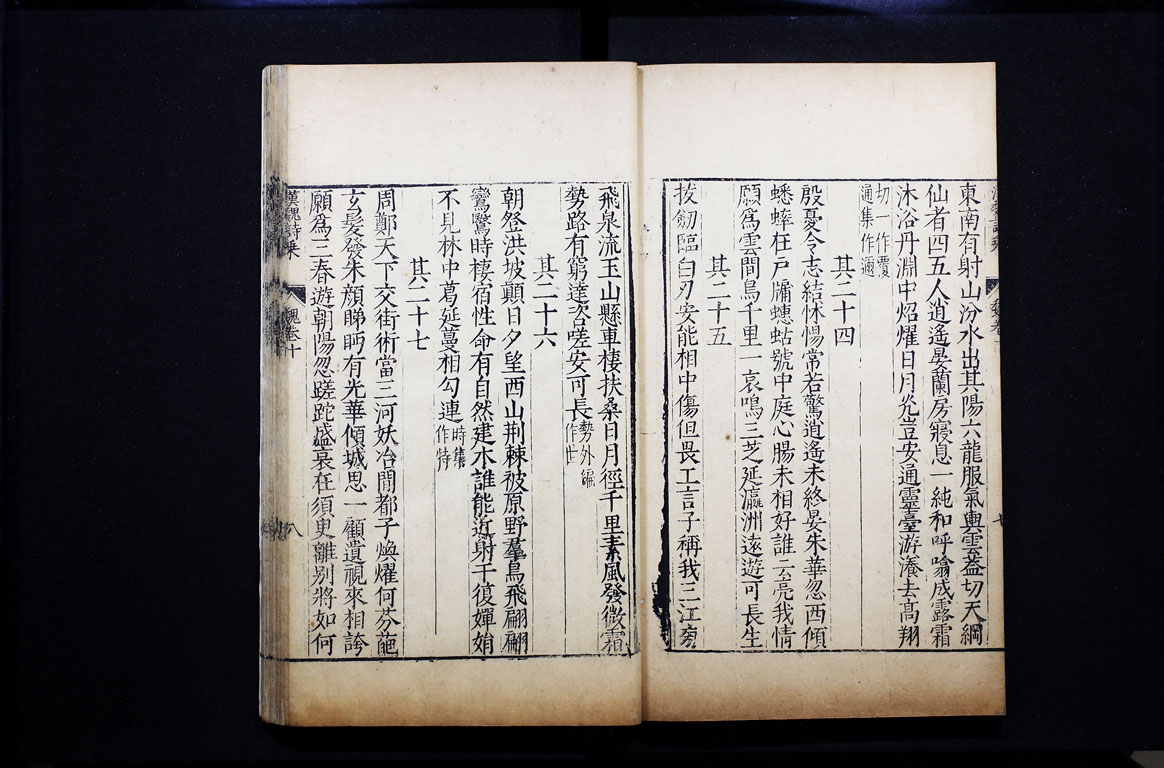 東南有射山汾水出其陽六龍服氣輿雲蓋切天綱
仙者四五人逍遥晏蘭房寢息一純和呼噏成露霜
沐浴丹淵中炤燿日月光豈安通靈臺游瀁去高翔
切一作覆
通集作邇
其二十四
殷憂令志結怵惕常若驚逍遥未終晏朱華忽西傾
蟋蟀在戶牖蟪蛄號中庭心腸未相好誰云亮我情
願爲雲間鳥千里一哀鳴三芝延瀛洲遠遊可長生
其二十五
拔劒臨白刃安能相中傷但畏工言子稱我三江旁
飛泉流玉山懸車棲扶桑日月徑千里素風發微霜
勢路有窮達咨嗟安可長
勢外編
作世
其二十六
朝登洪坡顛日夕望西山荆棘被原野羣鳥飛翩翩
鸞鷖時棲宿性命有自然建木誰能近射干復嬋娟
不見林中葛延蔓相勾連
時集
作特
其二十七
周鄭天下交街術當三河妖冶閒都子煥燿何芬葩
玄髮發朱顔睇眄有光華傾城思一顧遺視來相誇
願爲三春遊朝陽忽蹉跎盛衰在須臾離別將如何
漢魏詩乘
魏卷十
八